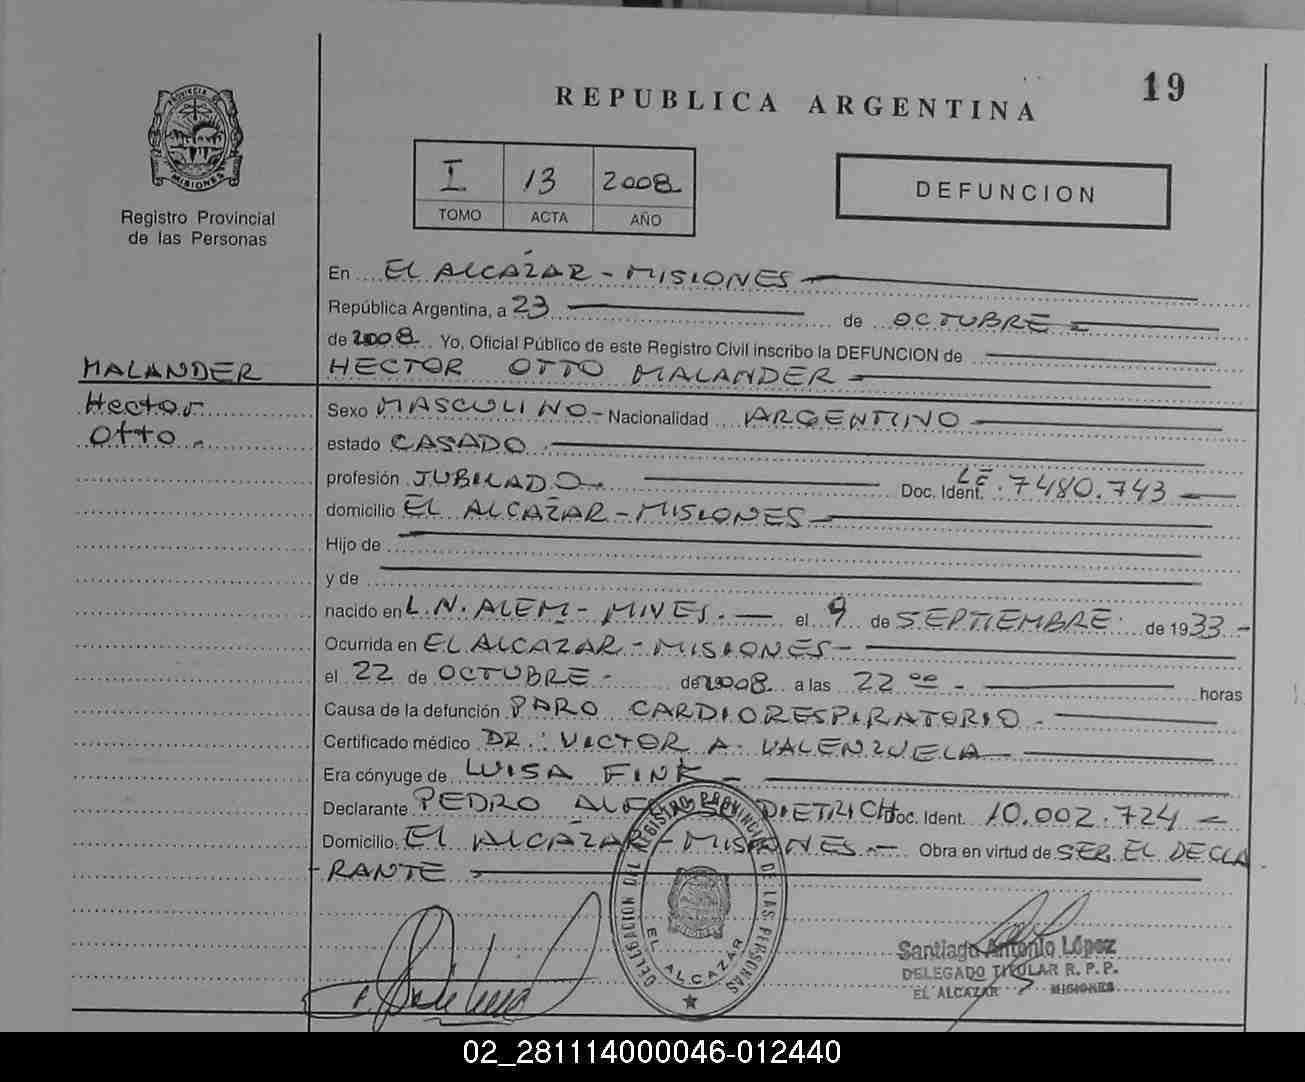 19
REPUBLICA ARGENTINA
PROVINCIA DE
MISIONES
Registro Provincial
de las Personas
I 13 2008
TOMO ACTA AÑO
DEFUNCION
En EL ALCAZAR - MISIONES
República Argentina, a 23 de OCTUBRE
de 2008 Yo, Oficial Público de este Registro Civil inscribo la DEFUNCION de
MALANDER
HECTOR OTTO MALANDER
Hector
Otto
Sexo MASCULINO - Nacionalidad ARGENTINO
estado CASADO
profesión JUBILADO Doc. Ident. LE. 7480.743
domicilio EL ALCAZAR - MISIONES
Hijo de
y de
nacido en L.N. ALEM - MNES. el 9 de SEPTIEMBRE de 1933 -
Ocurrida en EL ALCAZAR - MISIONES -
el 22 de OCTUBRE - de 2008 a las 22 00 - horas
Causa de la defunción PARO CARDIORESPIRATORIO -
Certificado médico DR. VICTOR A. VALENZUELA
Era cónyuge de LUISA FINK -
Declarante PEDRO DIETRICH Doc. Ident. 10.002.724 -
Domicilio EL ALCAZAR - MISIONES - Obra en virtud de SER EL DECLA
RANTE
DELEGACION DEL REGISTRO PROVINCIAL DE LAS PERSONAS
EL ALCAZAR
Santiago Antonio López
DELEGADO TITULAR R. P. P.
EL ALCAZAR MISIONES
02_281114000046-012440